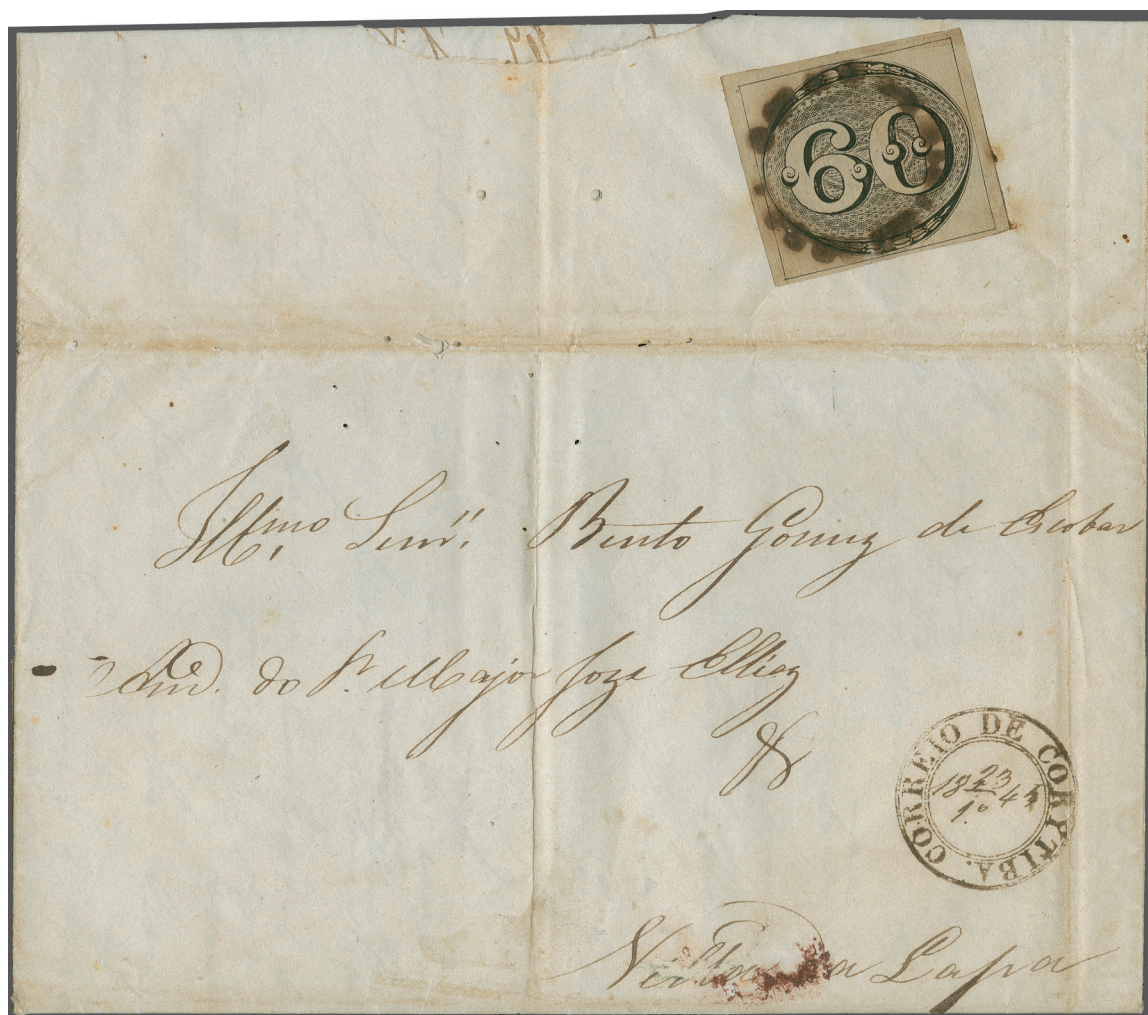 60
Illmo Senr. Bento Gomez de Escobar
do Sr. Major Joze
CORREIO DE CORYTIBA.
18 23/1o 44
Villa da Lapa